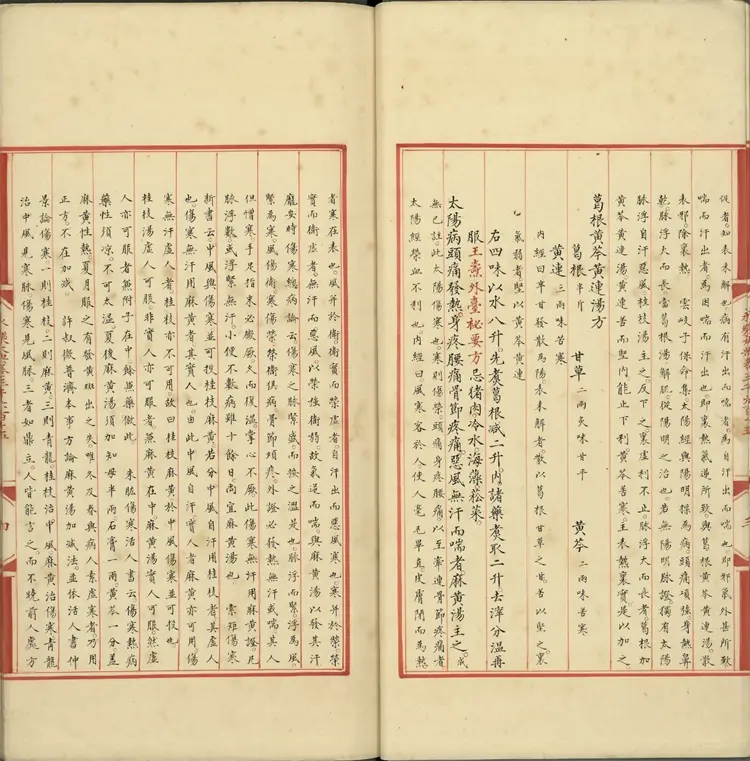 佚者。知表未解也。病有汗出而喘者。為自汗出而喘也。即邪氣外甚所致
喘而汗出者。為因喘而汗出也。即裏熱氣逆所致。與葛根黃芩黃連湯。散
表邪除裏熱。 雲岐子保命集。太陽經與陽明採為病。頭痛項強。身熱鼻
乾。脈浮大而長。當葛根湯解肌。從陽明之治也。若無陽明脈證。獨有太陽
脈浮自汗惡風。桂枝湯主之。反下之裏虛利不止。脈浮大而長者。葛根加
黃芩黃連湯。黃連苦而堅。內能止下利。黃芩苦寒。主表熱裏實。是以加之
葛根黃芩黃連湯方
葛根半斤 甘草二兩炙味甘平 黃芩二兩味苦寒
黃連三兩味苦寒
內經曰。辛甘發散為陽。表未解者。散以葛根甘草之甘。苦以堅之。裏
氣弱者。堅以黃芩黃連
右四味以水八升。先煮葛根減二升。內諸藥煮取二升。去滓分溫再
服。王燾外臺祕要方。忌豬肉冷水海藻菘菜。
太陽病。頭痛發熱。身疼腰痛。骨節疼痛。惡風無汗而喘者。麻黃湯主之。成
無已註。此太陽傷寒也。寒則傷榮。頭痛身疼腰痛。以至牽連骨節疼痛者
太陽經榮血不利也。內經曰。風寒客於人。使人毫毛畢直。皮膚閉而為熱。
者寒在表也。風并於衛。衛實而榮虛者。自汗出而惡風寒也。寒并於榮。榮
實而衛虛者。無汗而惡風也。以榮強衛弱。故氣逆而喘。與麻黃湯以發其汗
龐安時傷寒總病論云。傷寒之脈緊盛而按之澀是也。脈浮而緊。浮為風。
緊為寒。風傷衛。寒傷榮。榮衛俱病。骨節煩疼。外證必發熱無汗或喘。其人
但憎寒。手足指末必微厥。久而復溫。掌心不厥。此傷寒無汗用麻黃證。凡
脈浮數。或浮緊無汗。小便不數。病雖十餘日。尚宜麻黃湯也。 常雖傷寒
析書云。中風與傷寒並可投桂枝麻黃。若分中風自汗用桂枝者。其虛人
也。傷寒無汗用麻黃者。其實人也。由此中風自汗實人者。麻黃亦可用。傷
寒無汗虛人者。桂枝亦不可用。故曰。桂枝麻黃於中風傷寒並可投也
桂枝湯虛人可服。非實人亦可服者。無麻黃在中。麻黃湯實人可服。然虛
人亦可服者。無附子在中。餘無藥倣此。 朱肱傷寒活人書云。傷寒熱病
藥性須涼。不可太溫。夏後麻黃湯須加知母半兩。石膏一兩。黃芩一分。蓋
麻黃性熱。夏月服之。有發黃斑出之失。唯冬及春與病人素虛寒者。乃用
正方不在加減。 許叔微普濟本事方論麻黃湯加減法。並依活人書。仲
景論傷寒。一則桂枝。二則麻黃。三則青龍。桂枝治中風。麻黃治傷寒。青龍
治中風見寒脈。傷寒見風脈。三者如鼎立。人皆能言之。而不曉前人處方